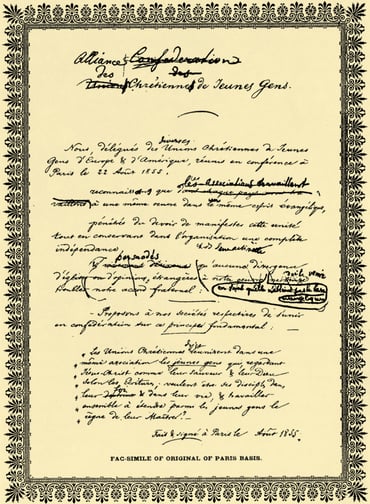 Alliance Confédération
des des
Unions Chrétiennes de Jeunes Gens.
diverses
Nous, délégués des Unions Chrétiennes de Jeunes
Gens d'Europe & d'Amérique, réunis en conférence à
Paris le 22 Août 1855.
les associations travaillant
reconnaissant que
à une même œuvre dans le même esprit Evangélique,
pénétrés du devoir de manifester cette unité
tout en conservant dans l'organisation une complète
indépendance,
persuadés
aucune
d'opinions, étrangères à notre
notre accord fraternel:
— Proposons à nos sociétés respectives de s'unir
en confédération sur ce principe fondamental:
Les Unions Chrétiennes réunissent dans une
même association les jeunes gens qui regardant
Jésus-Christ comme leur Sauveur & leur Dieu
selon les Écritures, veulent être ses disciples dans
foi
leur & dans leur vie & travailler
ensemble à étendre parmi les jeunes gens le
règne de leur Maître.
Fait & signé à Paris le Août 1855.
FAC-SIMILE OF ORIGINAL OF PARIS BASIS.